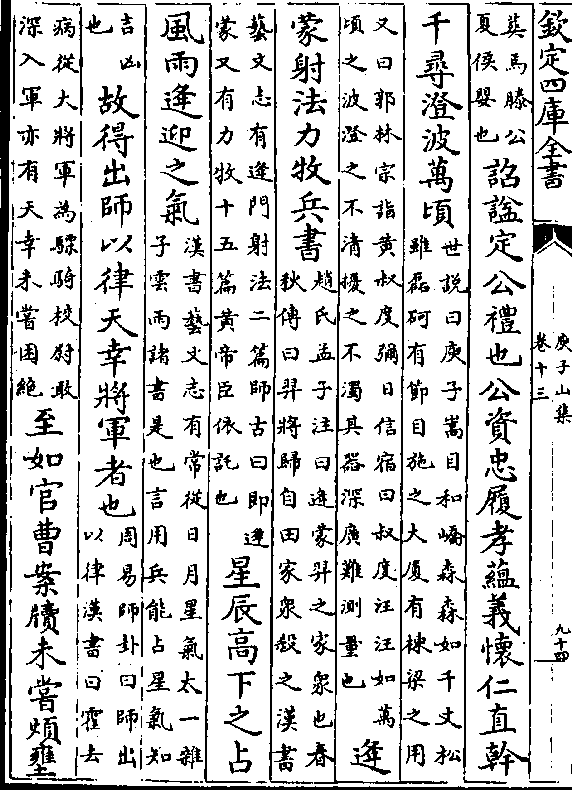 欽定四庫全書
庾子山集
卷十三
九十四
英馬滕公
夏侯嬰也
詔諡定公禮也公資忠履孝蘊義懷仁直幹
千尋澄波萬頃
世說曰庾子嵩目和嶠森森如千丈松
雖磊砢有節目施之大厦有棟梁之用
又曰郭林宗詣黃叔度彌日信宿曰叔度汪汪如萬
頃之波澄之不清擾之不濁其器深廣難測量也
逢
蒙射法力牧兵書
趙氏孟子注曰逢蒙羿之家衆也春
秋傳曰羿將歸自田家衆殺之漢書
藝文志有逢門射法二篇師古曰即逢
蒙又有力牧十五篇黃帝臣依託也
星辰高下之占
風雨逢迎之氣
漢書藝文志有常從日月星氣太一雜
子雲雨諸書是也言用兵能占星氣知
吉凶
也
故得出師以律天幸將軍者也
周易師卦曰師出
以律漢書曰霍去
病從大將軍為驃騎校尉敢
深入軍亦有天幸未嘗困絶
至如官曹案牘未嘗煩壅